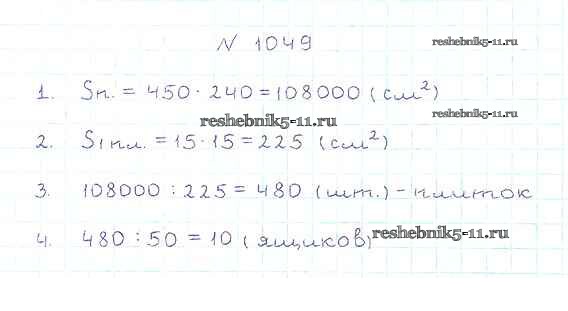 N 1049
reshebnik5-11.ru
1. Sп. = 450 · 240 = 108000 (см²)
reshebnik5-11.ru
reshebnik5-11.ru
2. S1 пл. = 15 · 15 = 225 (см²)
3. 108000 : 225 = 480 (шт.) - плиток
4. 480 : 50 = 10 (ящиков)
reshebnik5-11.ru